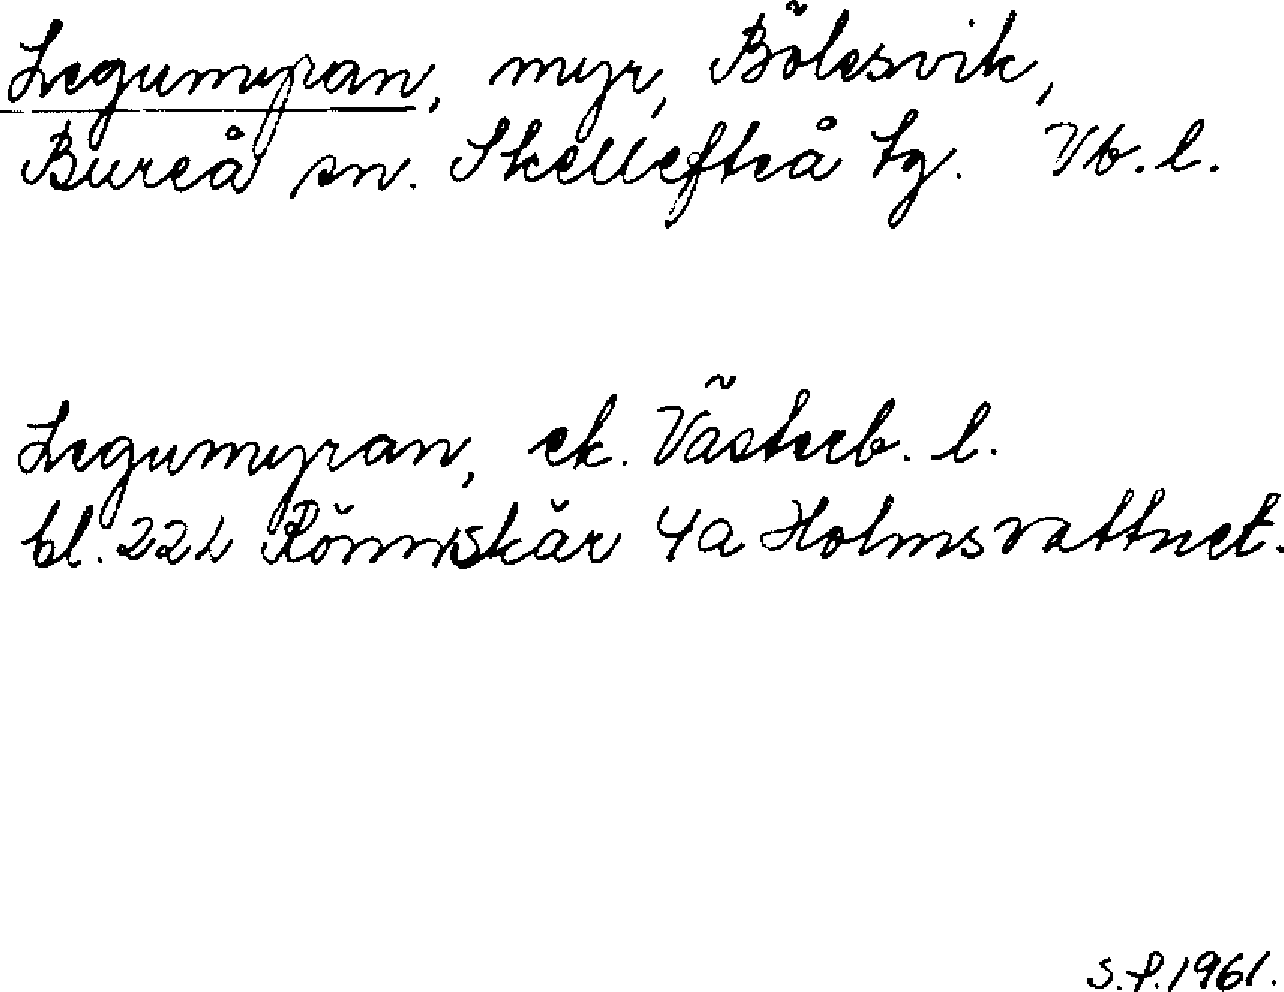 Legumyran, myr, Bölesvik,
Bureå sn. Skellefteå tg. Vb. l.
Legumyran, ek. Västerb. l.
bl. 22L Rönnskär 4a Holmsvattnet.
S.P. 1961.